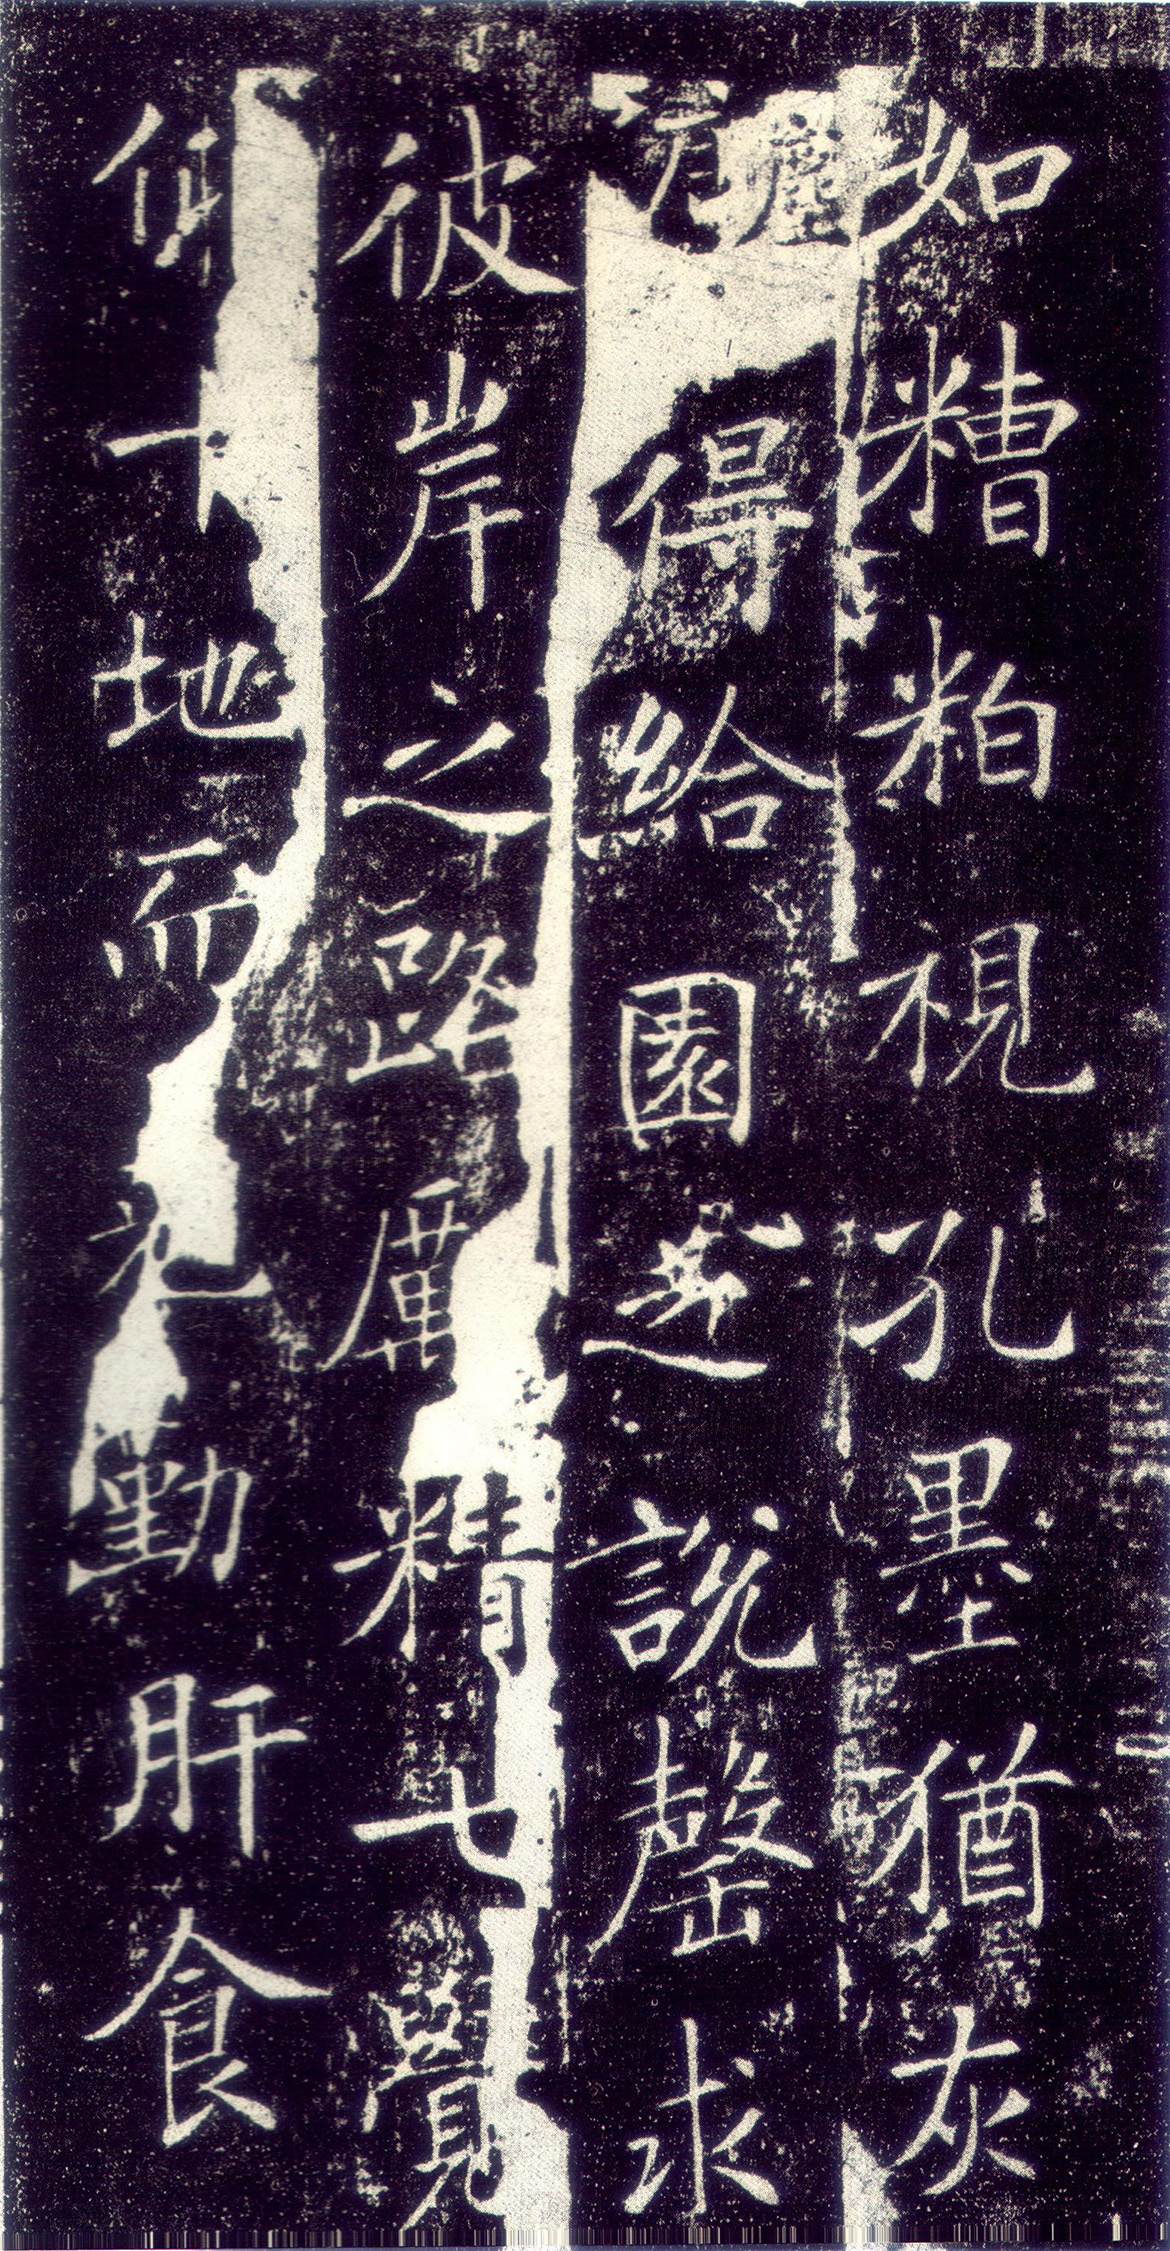 如糟粕視孔墨猶灰
塵得給園之說罄求
彼岸之路厲精七覺
仰十地而克勤肝食